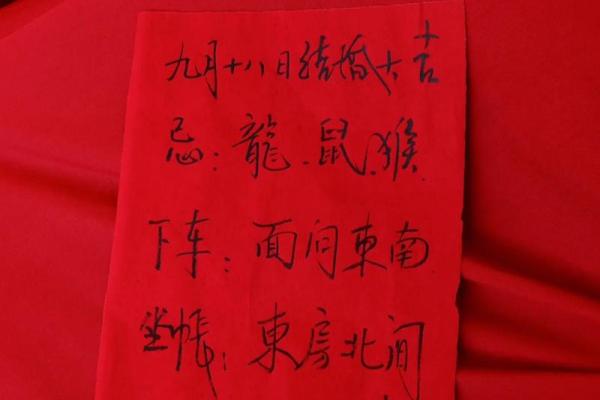 九月十八日结婚大吉
忌:龍.鼠.猴.
下车:面向東南
坐帳:東房北间